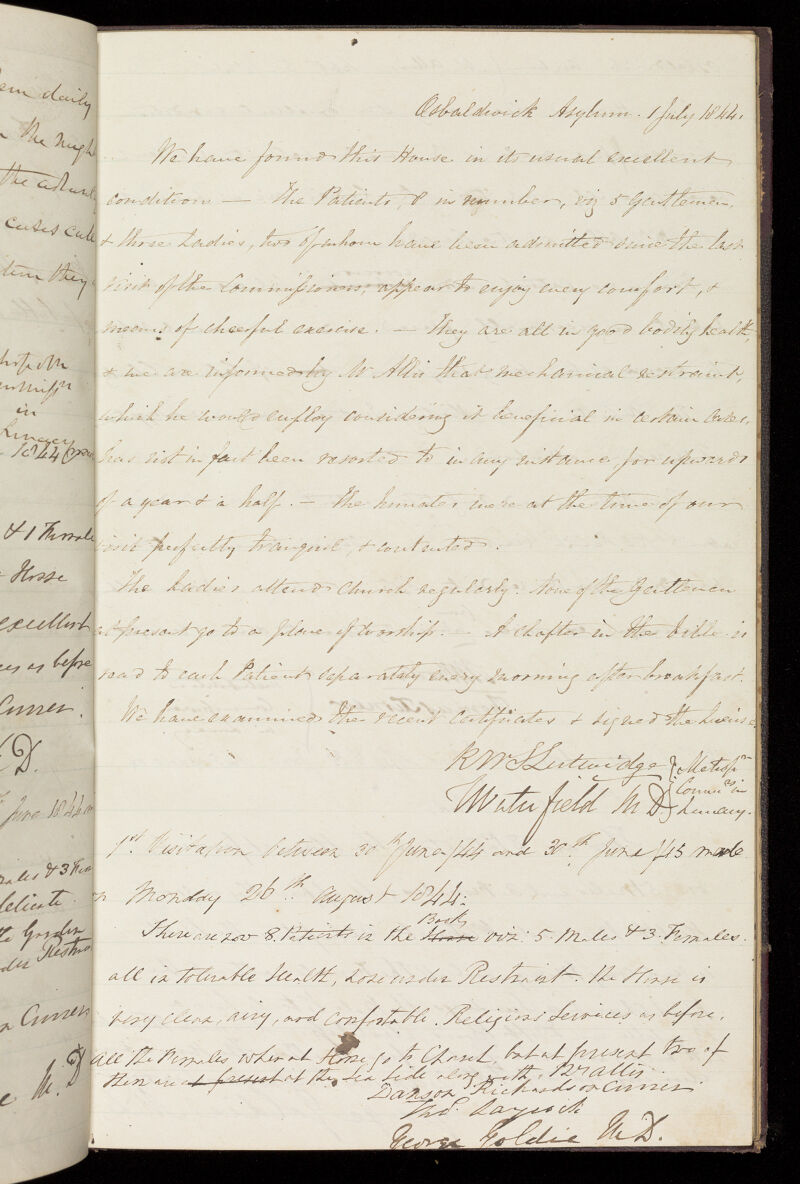 em daily
the adm
cases
tem they
in
Lunacy
1844
& 1 Female
House
excellent
as before
Currer.
D.
June 1844
& 3
delicate.
Currer
M.D
Osbaldwick Asylum. 1 July 1844.
We have found this House in its usual excellent
condition — The Patients, 8 in number, viz 5 Gentlemen,
& three Ladies, two of whom have been admitted since the last
visit of the Commissioners, appear to enjoy every comfort, &
means of cheerful exercise. — They are all in good bodily health,
& we are informed by Mr Allis that mechanical restraint,
which he would employ considering it beneficial in certain cases,
has not in fact been resorted to in any instance for upwards
of a year & a half. — The Inmates were at the time of our
visit perfectly tranquil & contented.
The Ladies attend Church regularly. None of the Gentlemen
at present go to a place of worship. — A chapter in the Bible is
read to each Patient separately every morning after breakfast.
We have examined the recent certificates & signed the License
RWS Lutwidge } Metropn
Waterfield MD } Commrs in Lunacy.
1st Visitation between 30th June /44 and 30th June /45 made
on Monday 26th August 1844:
There are now 8 Patients in the House Books viz: 5 Males & 3 Females.
all in tolerable Health, none under Restraint. The House is
very clean, airy, and comfortable. Religious Services as before.
All the Females when at Home go to Church, but at present two of
them are at present at the Sea Side along with Mr Allis.
Danson Richardson Currer
Thos Laycock
George Goldie M.D.